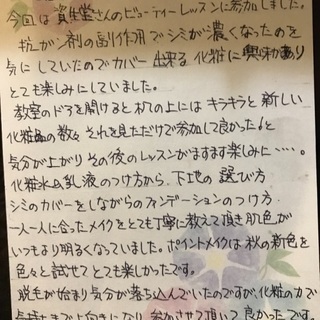 今回は資生堂さんのビューティーレッスンに参加しました。
抗ガン剤の副作用でシミが濃くなったのを
気にしていたのでカバー出来る化粧に興味あり
とても楽しみにしていました。
教室のドアを開けると机の上にはキラキラと新しい
化粧品の数々それを見ただけで参加して良かった!と
気分が上がりその後のレッスンがますます楽しみに…。
化粧水、乳液のつけ方から、下地の選び方
シミのカバーをしながらのファンデーションのつけ方
一人一人に合ったメイクをとても丁寧に教えて頂き肌色が
いつもより明るくなっていました。ポイントメイクは秋の新色を
色々と試せてとても楽しかったです。
脱毛が始まり気分が落ち込んでいたのですが、化粧の力で
気持ちまで上向きになり参加させて頂いて良かったです。